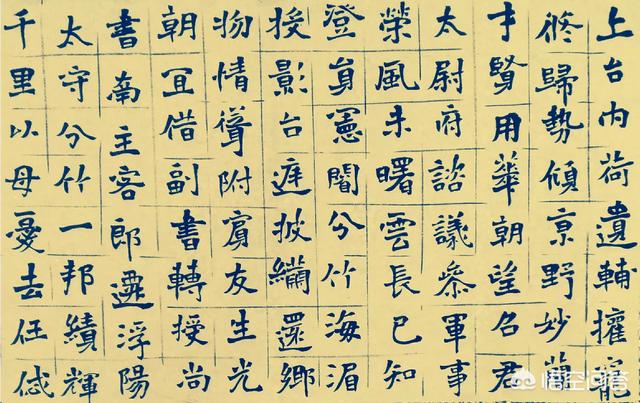 上台內荷遺輔擢寵
修歸勢傾京野妙
才賢用華朝望名君
太尉府諮議參軍事
榮風未曙雲長已知
澄身憲閣分竹海湄
授影台遊披繡還鄉
物情聳附賓友生光
朝冝借副書轉授尚
書南主客郎遷浮陽
太守分竹一邦績輝
千里以母憂去任俄
悟空问答